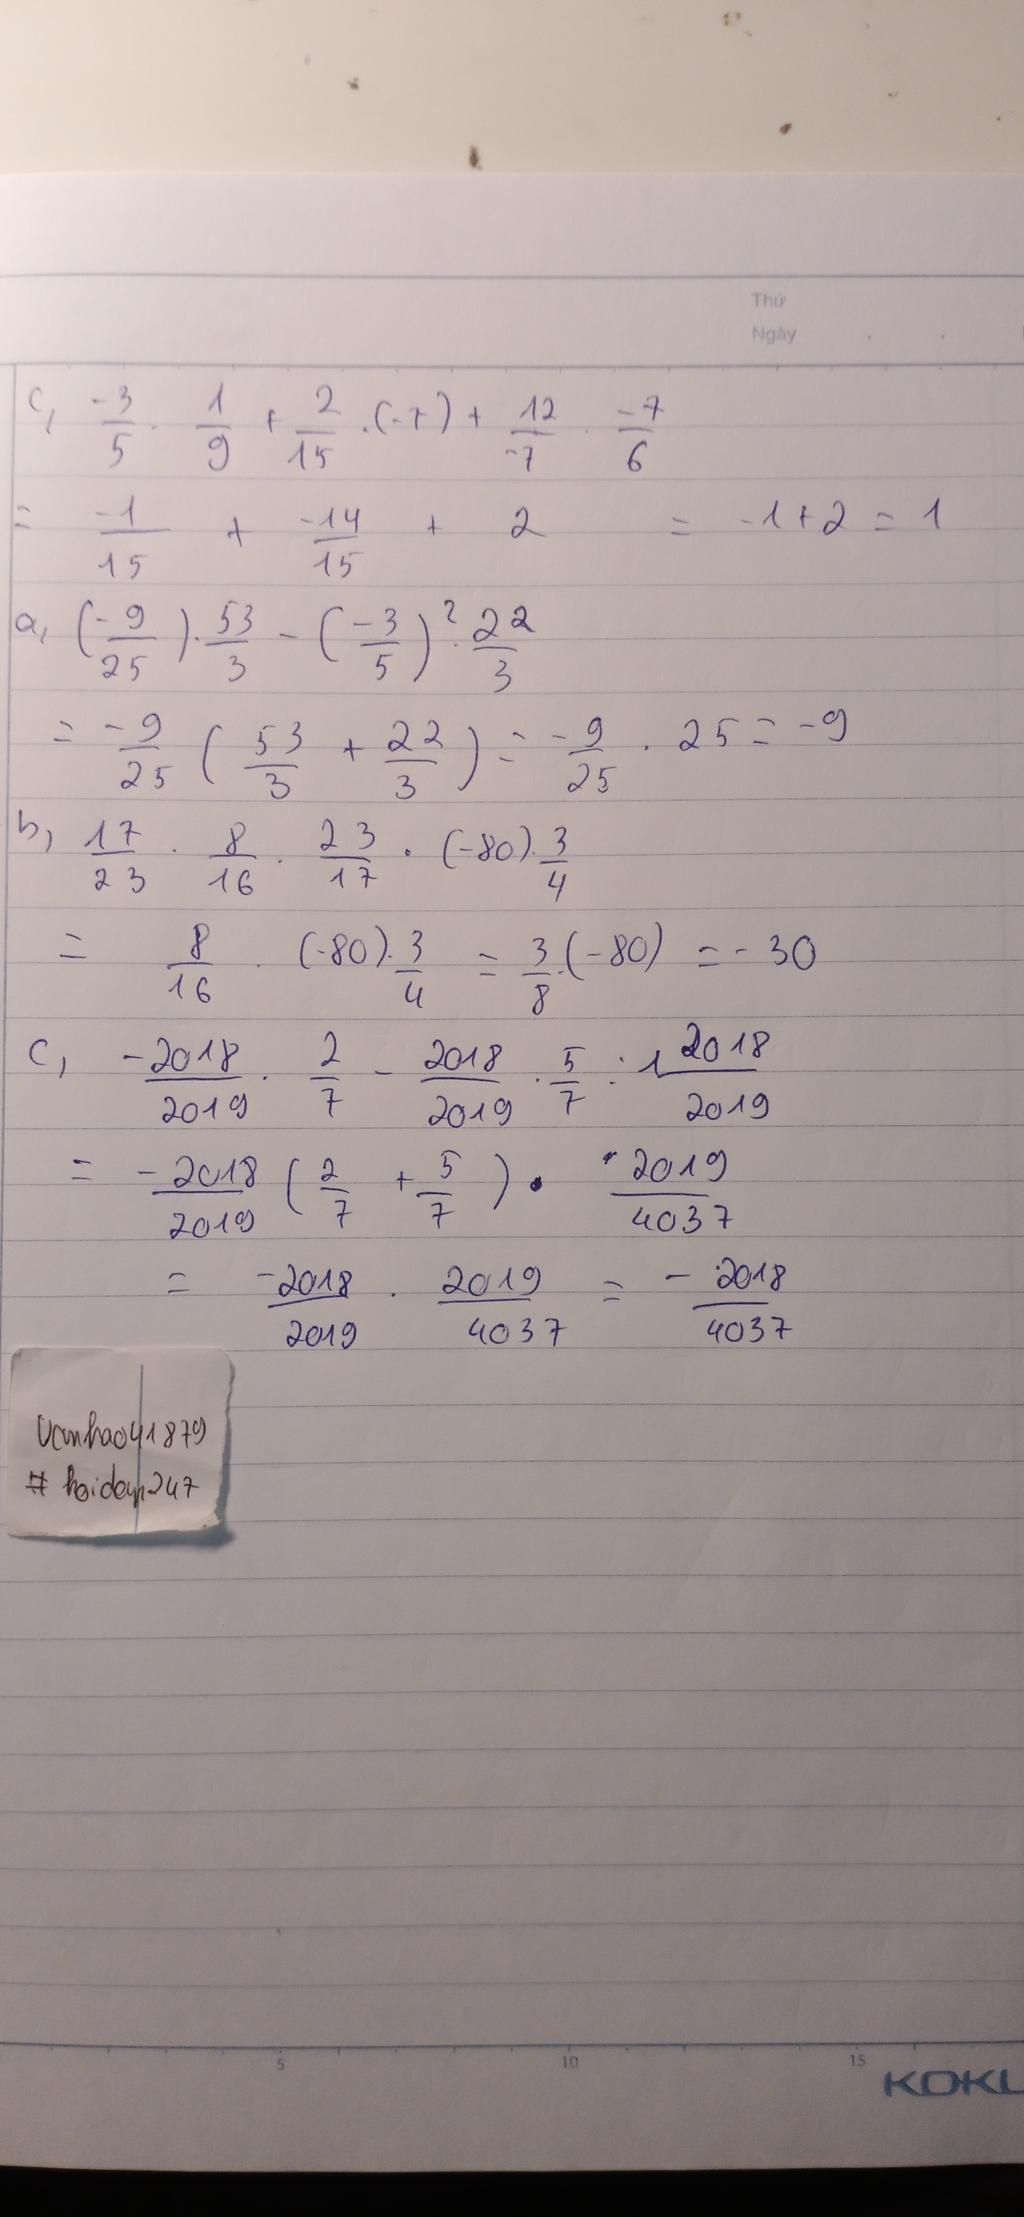 Thứ
Ngày
c, -3/5 . 1/9 + 2/15 .(-7) + 12/-7 . -7/6
= -1/15 + -14/15 + 2 = -1+2 = 1
a, (-9/25).53/3 - (-3/5)².22/3
= -9/25 (53/3 + 22/3) = -9/25 . 25 = -9
b, 17/23 . 8/16 . 23/17 . (-80).3/4
= 8/16 . (-80).3/4 = 3/8.(-80) = -30
c, -2018/2019 . 2/7 - 2018/2019 . 5/7 : 1 2018/2019
= -2018/2019 (2/7 + 5/7) . 2019/4037
= -2018/2019 . 2019/4037 = -2018/4037
Vanhao41879
# hoidap247
5 10 15
KOKU